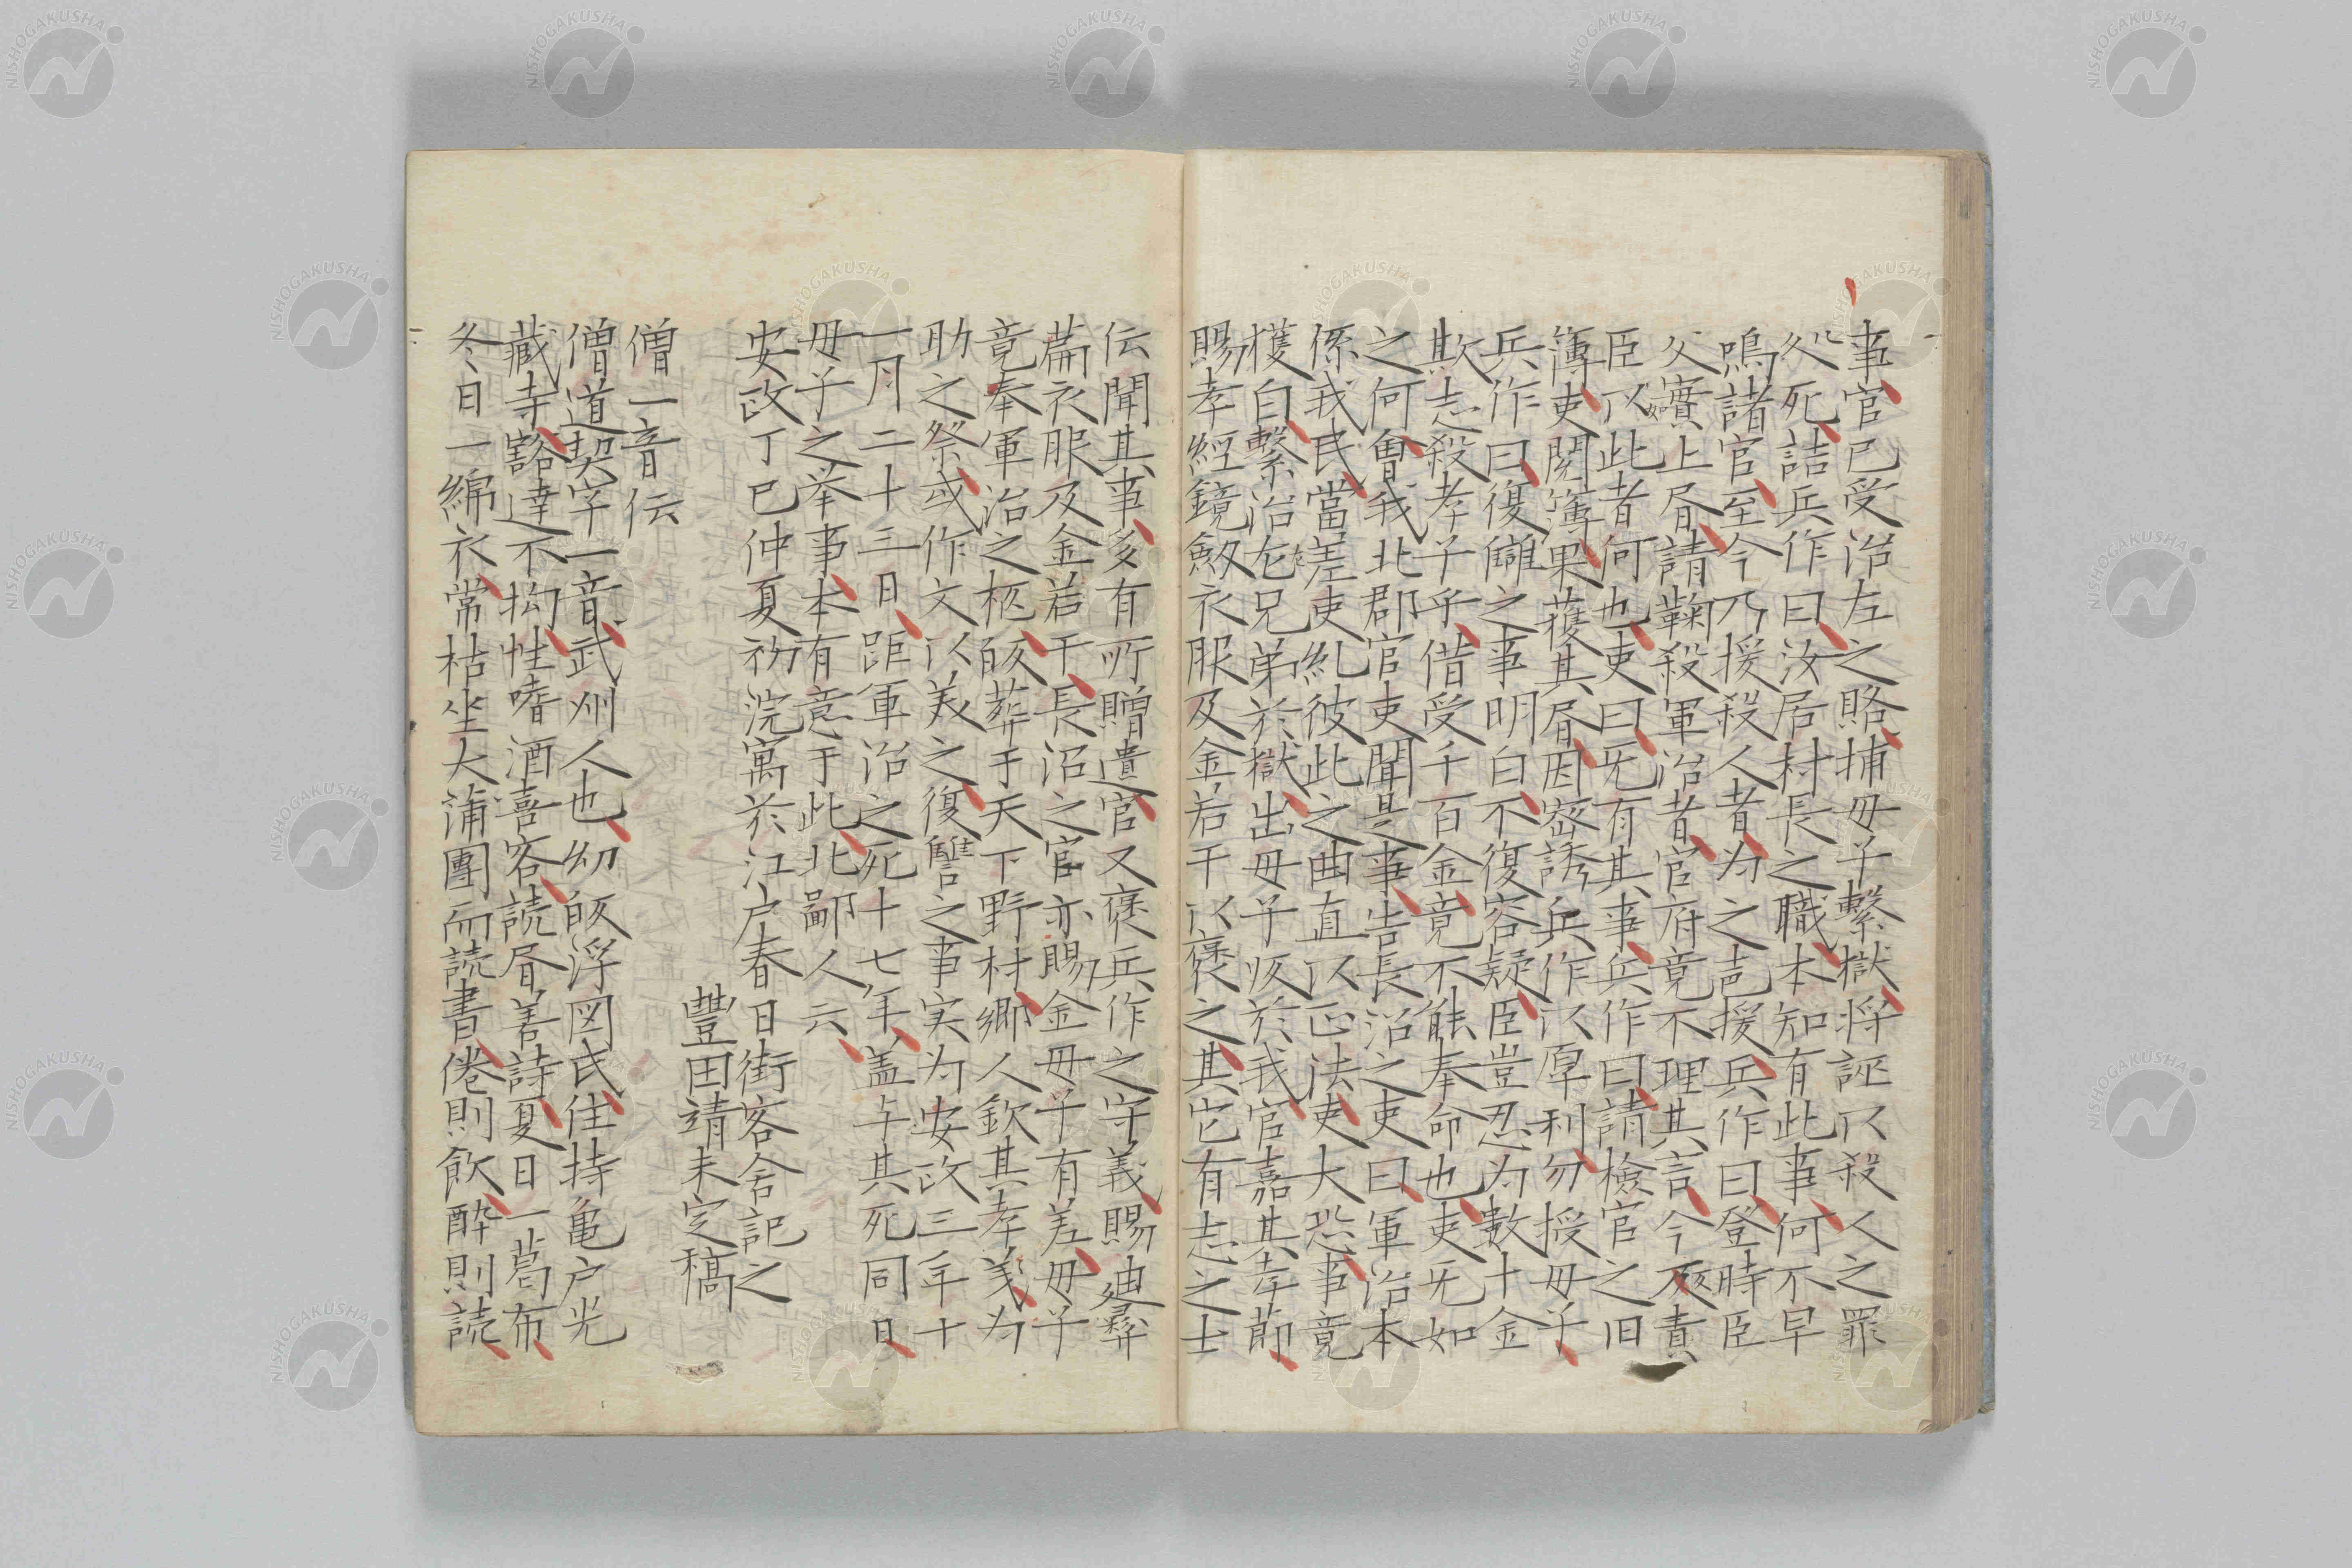 事官已受治左之賂捕母子繫獄将誣以殺人之罪
処死詰兵作曰汝居村長之職本知有此事何不早
鳴諸官至今乃援殺人者为之声援兵作曰登時臣
父實上屑請鞠殺軍治者官府竟不理其言今反責
臣以如此者何也吏曰旡有其事兵作曰請檢官之旧
簿吏閲簿果獲其屑因密誘兵作以厚利勿授母子
兵作曰復讎之事明白不復容疑臣豈忍为數十金
欺志殺孝子乎借受千百金竟不能奉命也吏旡如
之何會我北郡官吏聞其事告長沼之吏曰軍治本
係我民當差吏糺彼此之曲直以正法吏大恐事竟
獲白繫治左兄弟於獄出母子皈於我官嘉其孝節
賜孝經鏡劔衣服及金若干以褒之其它有志之士
伝聞其事多有所贈遺官又褒兵作之守義賜迪彝
萹衣服及金若干長沼之官亦賜金母子有差母子
竟奉軍治之柩皈葬于天下野村郷人欽其孝義为
助之祭或作文以美之復讐之事実为安政三年十
一月二十三日距軍治之死十七年盖与其死同日
母子之举事本有意于此北鄙人云
安政丁巳仲夏初浣寓於江户春日街客舎記之
豐田靖未定稿
僧一音伝
僧道契字一音武州人也幼皈浮図氏住持亀户光
藏寺豁達不拘性嗜酒喜客読屑善詩夏日一葛布
冬日一綿衣常枯坐大蒲團而読書倦則飲酔則読